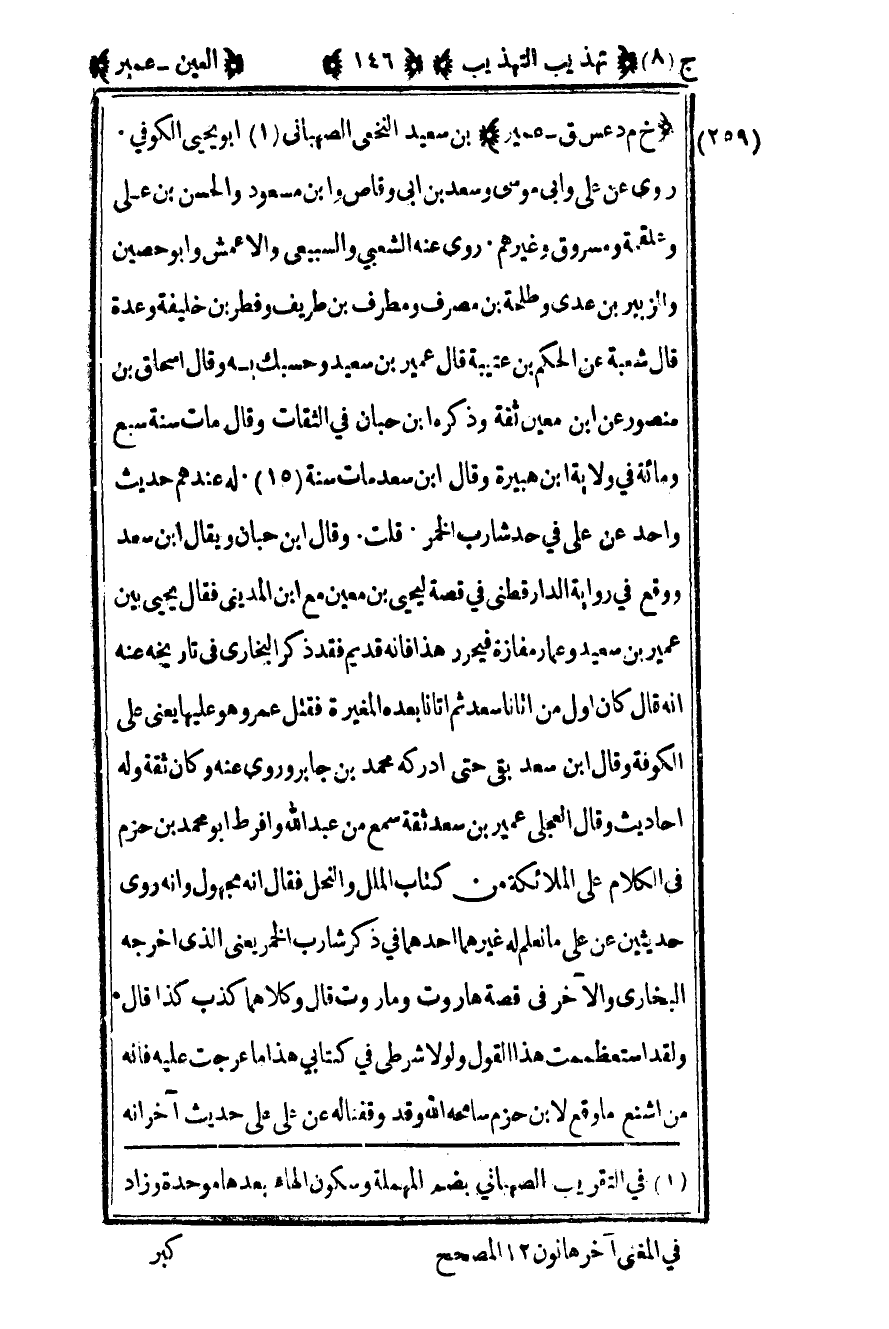 ج (٨) ﴿ تهذيب التهذيب ﴾ ﴿ ١٤٦ ﴾ ﴿ العين - عمير ﴾
(٢٥٩) ﴿ خ م د عس ق - عمير ﴾ بن سعيد النخعى الصهبانى (١) ابو يحيى الكوفي ٠
روى عن على وابى موسى وسعد بن ابى وقاص وابن مسعود والحسن بن على
وعلقمة ومسروق وغيرهم ٠ روى عنه الشعبي والسبيعى والاعمش وابو حصين
والزبير بن عدى وطلحة بن مصرف ومطرف بن طريف وفطر بن خليفة وعدة
قال شعبة عن الحكم بن عتيبة قال عمير بن سعيد وحسبك به وقال اسحاق بن
منصور عن ابن معين ثقة وذكره ابن حبان في الثقات وقال مات سنة سبع
ومائة في ولاية ابن هبيرة وقال ابن سعد مات سنة (١٥) ٠ له عندهم حديث
واحد عن على في حد شارب الخمر ٠ قلت ٠ وقال ابن حبان ويقال ابن سعد
ووقع في رواية الدارقطنى في قصة ليحيى بن معين مع ابن المدينى فقال يحيى بين
عمير بن سعيد وعمار مفازة فيحرر هذا فانه قديم فقد ذكر البخارى فى تاريخه عنه
انه قال كان اول من اتانا سعد ثم اتانا بعده المغيرة فقتل عمر وهو عليها يعنى على
الكوفة وقال ابن سعد بقى حتى ادركه محمد بن جابر وروى عنه وكان ثقة وله
احاديث وقال العجلى عمير بن سعد ثقة سمع من عبدالله وافرط ابو محمد بن حزم
فى الكلام على الملائكة من كتاب الملل والنحل فقال انه مجهول وانه روى
حديثين عن على ما نعلم له غيرهما احدهما في ذكر شارب الخمر يعنى الذى اخرجه
البخارى والآخر فى قصة هاروت وماروت قال وكلاهما كذب كذا قال ٠
ولقد استعظمت هذا القول ولولا شرطى في كتابي هذا ما عرجت عليه فانه
من اشنع ما وقع لابن حزم سامحه الله وقد وقفنا له عن على على حديث آخر انه
(١) في التقريب الصهباني بضم المهملة وسكون الهاء بعدها موحدة وزاد
في المغنى آخرها نون ١٢ المصحح
كبر